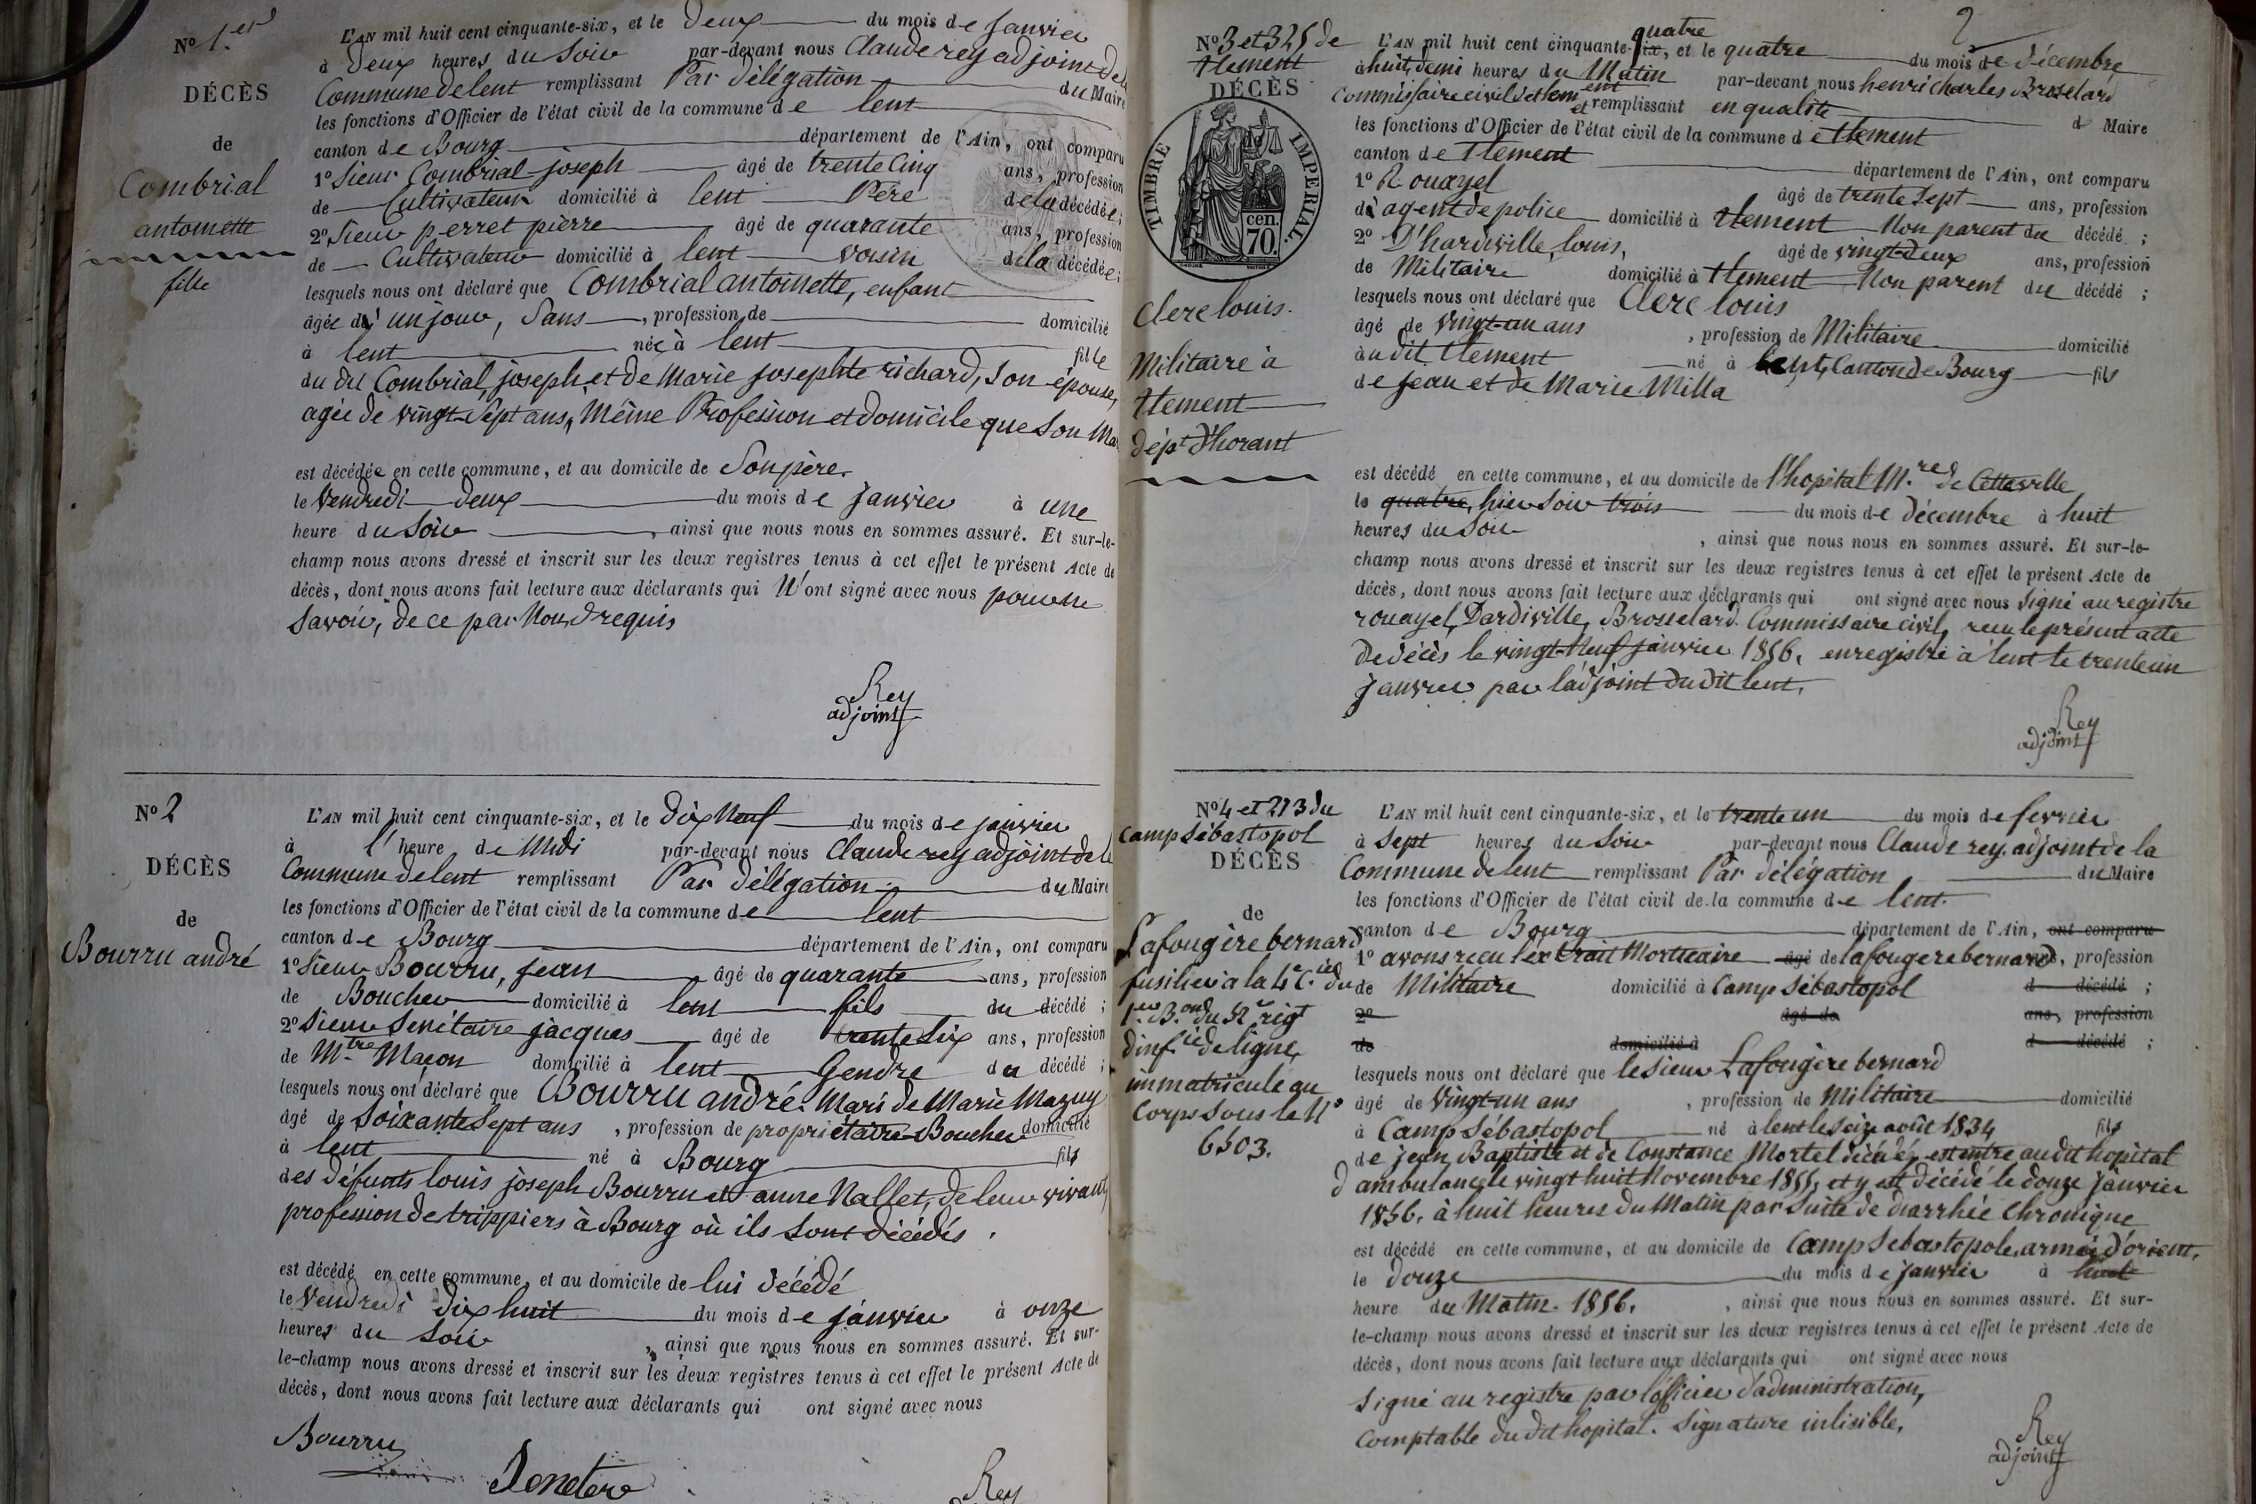 No 1.er
DÉCÈS
de
Combrial
antoinette
fille
L'AN mil huit cent cinquante-six, et le Deux du mois de Janvier
à Deux heures du Soir par-devant nous Claude rey adjoint de la
Commune de lent remplissant Par délégation du Maire
les fonctions d'Officier de l'état civil de la commune de lent
canton de Bourg département de l'Ain, ont comparu
1o Sieur Combrial joseph âgé de trente Cinq ans, profession
de Cultivateur domicilié à lent Père de la décédée;
2o Sieur perret pierre âgé de quarante ans, profession
de Cultivateur domicilié à lent voisin de la décédée;
lesquels nous ont déclaré que Combrial antoinette, enfant
âgée de un jour, Sans, profession de domicilié
à lent née à lent fille
du dit Combrial, joseph et de Marie josephte richard, Son épouse,
agée de vingt-Sept ans, Même Profession et domicile que Son Ma
est décédée en cette commune, et au domicile de Son père.
le Vendredi deux du mois de Janvier à une
heure du Soir, ainsi que nous nous en sommes assuré. Et sur-le-
champ nous avons dressé et inscrit sur les deux registres tenus à cet effet le présent Acte de
décès, dont nous avons fait lecture aux déclarants qui N'ont signé avec nous pour ne
Savoir, de ce par Nous requis
Rey
adjoint
No 2
DÉCÈS
de
Bourru andré
L'AN mil huit cent cinquante-six, et le Dix Neuf du mois de janvier
à l'heure de Midi par-devant nous Claude rey adjoint de la
Commune de lent remplissant Par délégation du Maire
les fonctions d'Officier de l'état civil de la commune de lent
canton de Bourg département de l'Ain, ont comparu
1o Sieur Bourru, jean âgé de quarante ans, profession
de Boucher domicilié à lent fils du décédé;
2o Sieur Senétaire jacques âgé de trente Six ans, profession
de M.tre Maçon domicilié à lent Gendre du décédé;
lesquels nous ont déclaré que Bourru andré. Mari de Marie Mazuy
âgé de Soixante Sept ans, profession de propriétaire-Boucher domicilié
à lent né à Bourg fils
des défunts louis joseph Bourru et anne Nallet, de leur vivant,
profession de trippiers à Bourg où ils sont décédés.
est décédé en cette commune, et au domicile de lui décédé
le Vendredi dix huit du mois de janvier à onze
heures du Soir, ainsi que nous nous en sommes assuré. Et sur-
le-champ nous avons dressé et inscrit sur les deux registres tenus à cet effet le présent Acte de
décès, dont nous avons fait lecture aux déclarants qui ont signé avec nous
Bourru
Senetere
Rey
2
No 3 et 325 de
tlement
DÉCÈS
de
TIMBRE IMPERIAL.
cen.
70.
Clerc louis.
Militaire à
tlement
dép.t d'horant
L'AN mil huit cent cinquante-six, quatre et le quatre du mois de Décembre
à huit, demi heures du Matin par-devant nous henri charles Brosselard
Commissaire civil de tlement et remplissant en qualité d Maire
les fonctions d'Officier de l'état civil de la commune de tlement
canton de tlement département de l'Ain, ont comparu
1o Rouayel âgé de trente Sept ans, profession
d'agent de police domicilié à tlement Non parent du décédé;
2o D'hardiville, louis, âgé de vingt-deux ans, profession
de Militaire domicilié à tlement Non parent du décédé;
lesquels nous ont déclaré que Clerc louis
âgé de vingt-un ans, profession de Militaire domicilié
au dit tlement né à lent, Canton de Bourg fils
de Jean et de Marie Milla
est décédé en cette commune, et au domicile de l'hopital M.re de Cette ville
le quatre, hier Soir trois du mois de décembre à huit
heures du Soir, ainsi que nous nous en sommes assuré. Et sur-le-
champ nous avons dressé et inscrit sur les deux registres tenus à cet effet le présent Acte de
décès, dont nous avons fait lecture aux déclarants qui ont signé avec nous Signé au registre
rouayel, Dardiville, Brosselard. Commissaire civil, reçu le présent acte
De décès le vingt-Neuf janvier 1856, enregistré à lent le trente un
janvier par l'adjoint du dit lent.
Rey
adjoint
No 4 et 213 du
Camp Sébastopol
DÉCÈS
de
Lafougère bernard
fusilier à la 4e C.ie du
1.er B.on du 52e rég.t
d'inf.ie de ligne,
immatriculé au
Corps Sous le No
6503.
L'AN mil huit cent cinquante-six, et le trente un du mois de fevrier
à Sept heures du Soir par-devant nous Claude rey, adjoint de la
Commune de lent remplissant Par délégation du Maire
les fonctions d'Officier de l'état civil de la commune de lent.
canton de Bourg département de l'Ain, ont comparu
1o avons reçu l'extrait Mortuaire âgé de lafougere bernard, profession
de Militaire domicilié à Camp Sébastopol d décédé;
2o âgé de ans, profession
de domicilié à d décédé;
lesquels nous ont déclaré que le Sieur Lafougère bernard
âgé de Vingt-un ans, profession de Militaire domicilié
à Camp Sébastopol né à lent le Seize août 1834 fils
de jean Baptiste et de Constance Mortel décédé, est entré au dit hopital
d'ambulance le vingt huit Novembre 1855, et y est décédé le douze janvier
1856, à huit heures du Matin par Suite de diarrhée Chronique
est décédé en cette commune, et au domicile de Camp Sébastopole, armée d'orient,
le douze du mois de janvier à huit
heure du Matin. 1856., ainsi que nous nous en sommes assuré. Et sur-
le-champ nous avons dressé et inscrit sur les deux registres tenus à cet effet le présent Acte de
décès, dont nous avons fait lecture aux déclarants qui ont signé avec nous
Signé au registre par l'officier d'administration,
Comptable du dit hopital. Signature inlisible.
Rey
adjoint